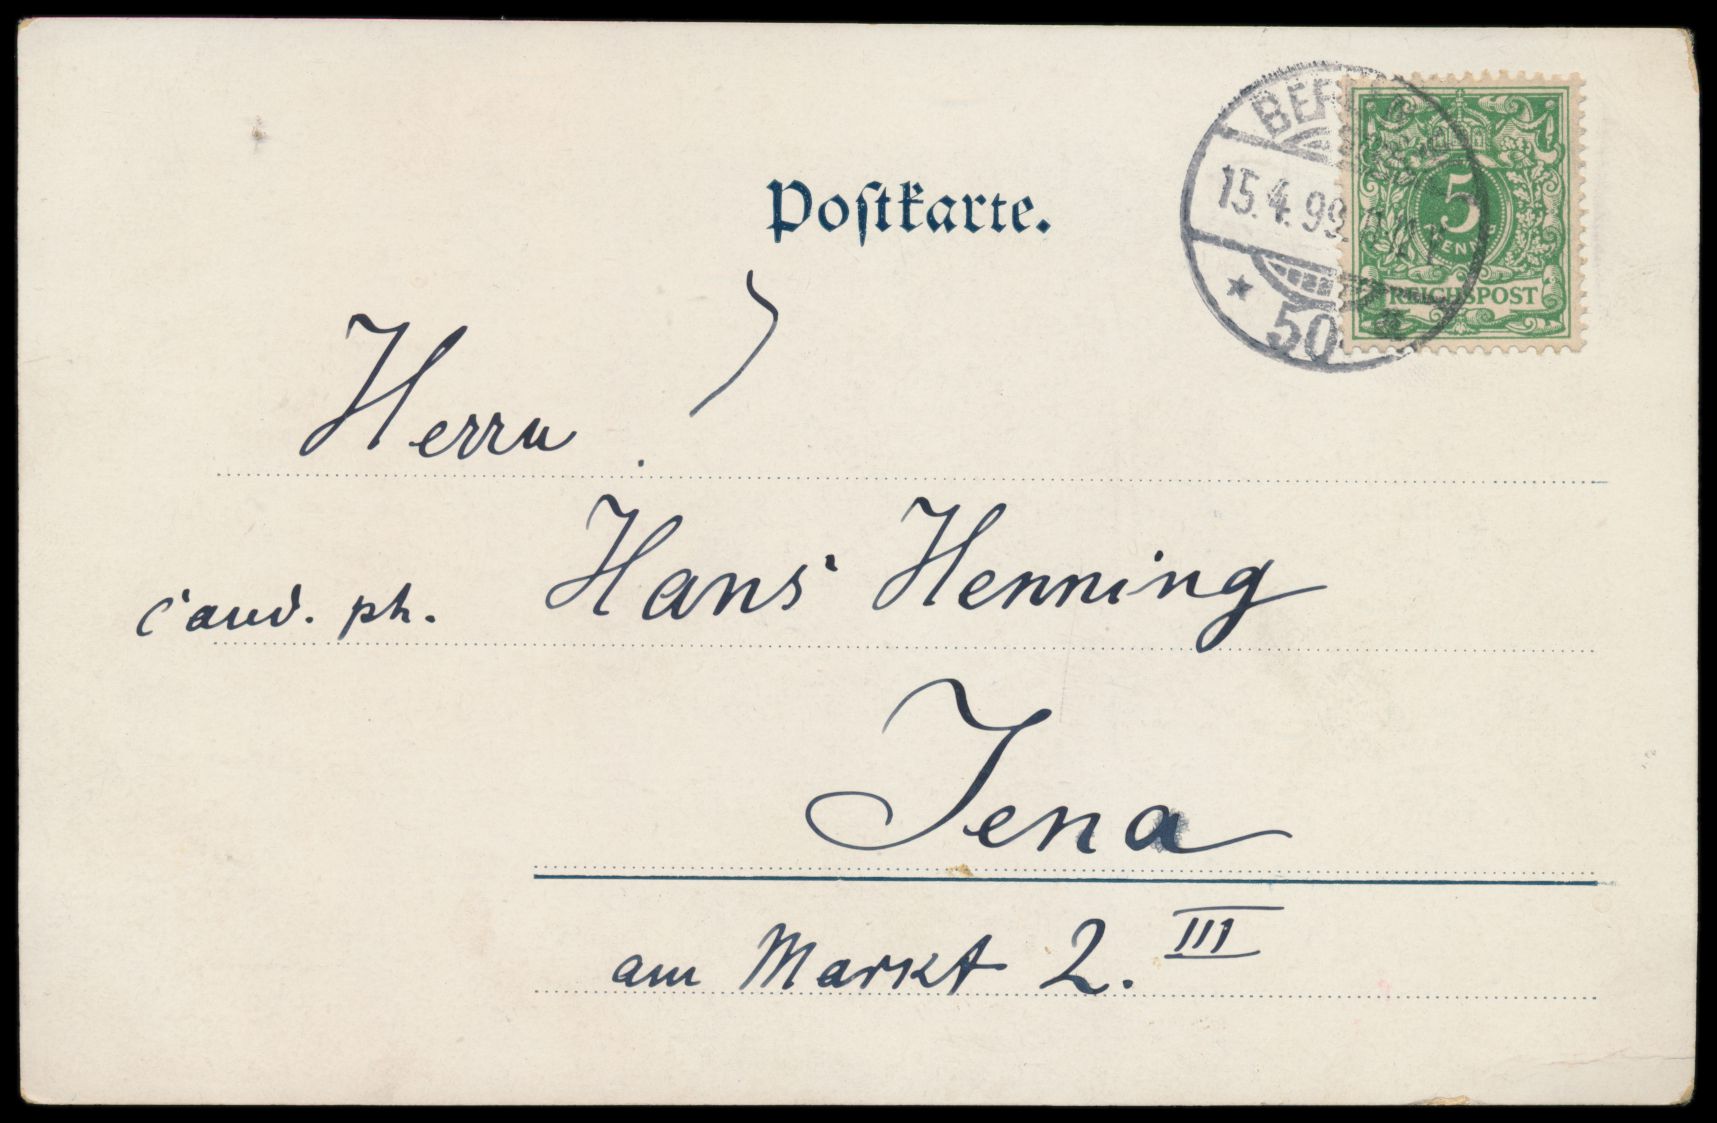 Postkarte.
BERLIN
15.4.99.
50
5
PFENNIG
REICHSPOST
Herrn
cand. ph. Hans Henning
Jena
am Markt 2. III